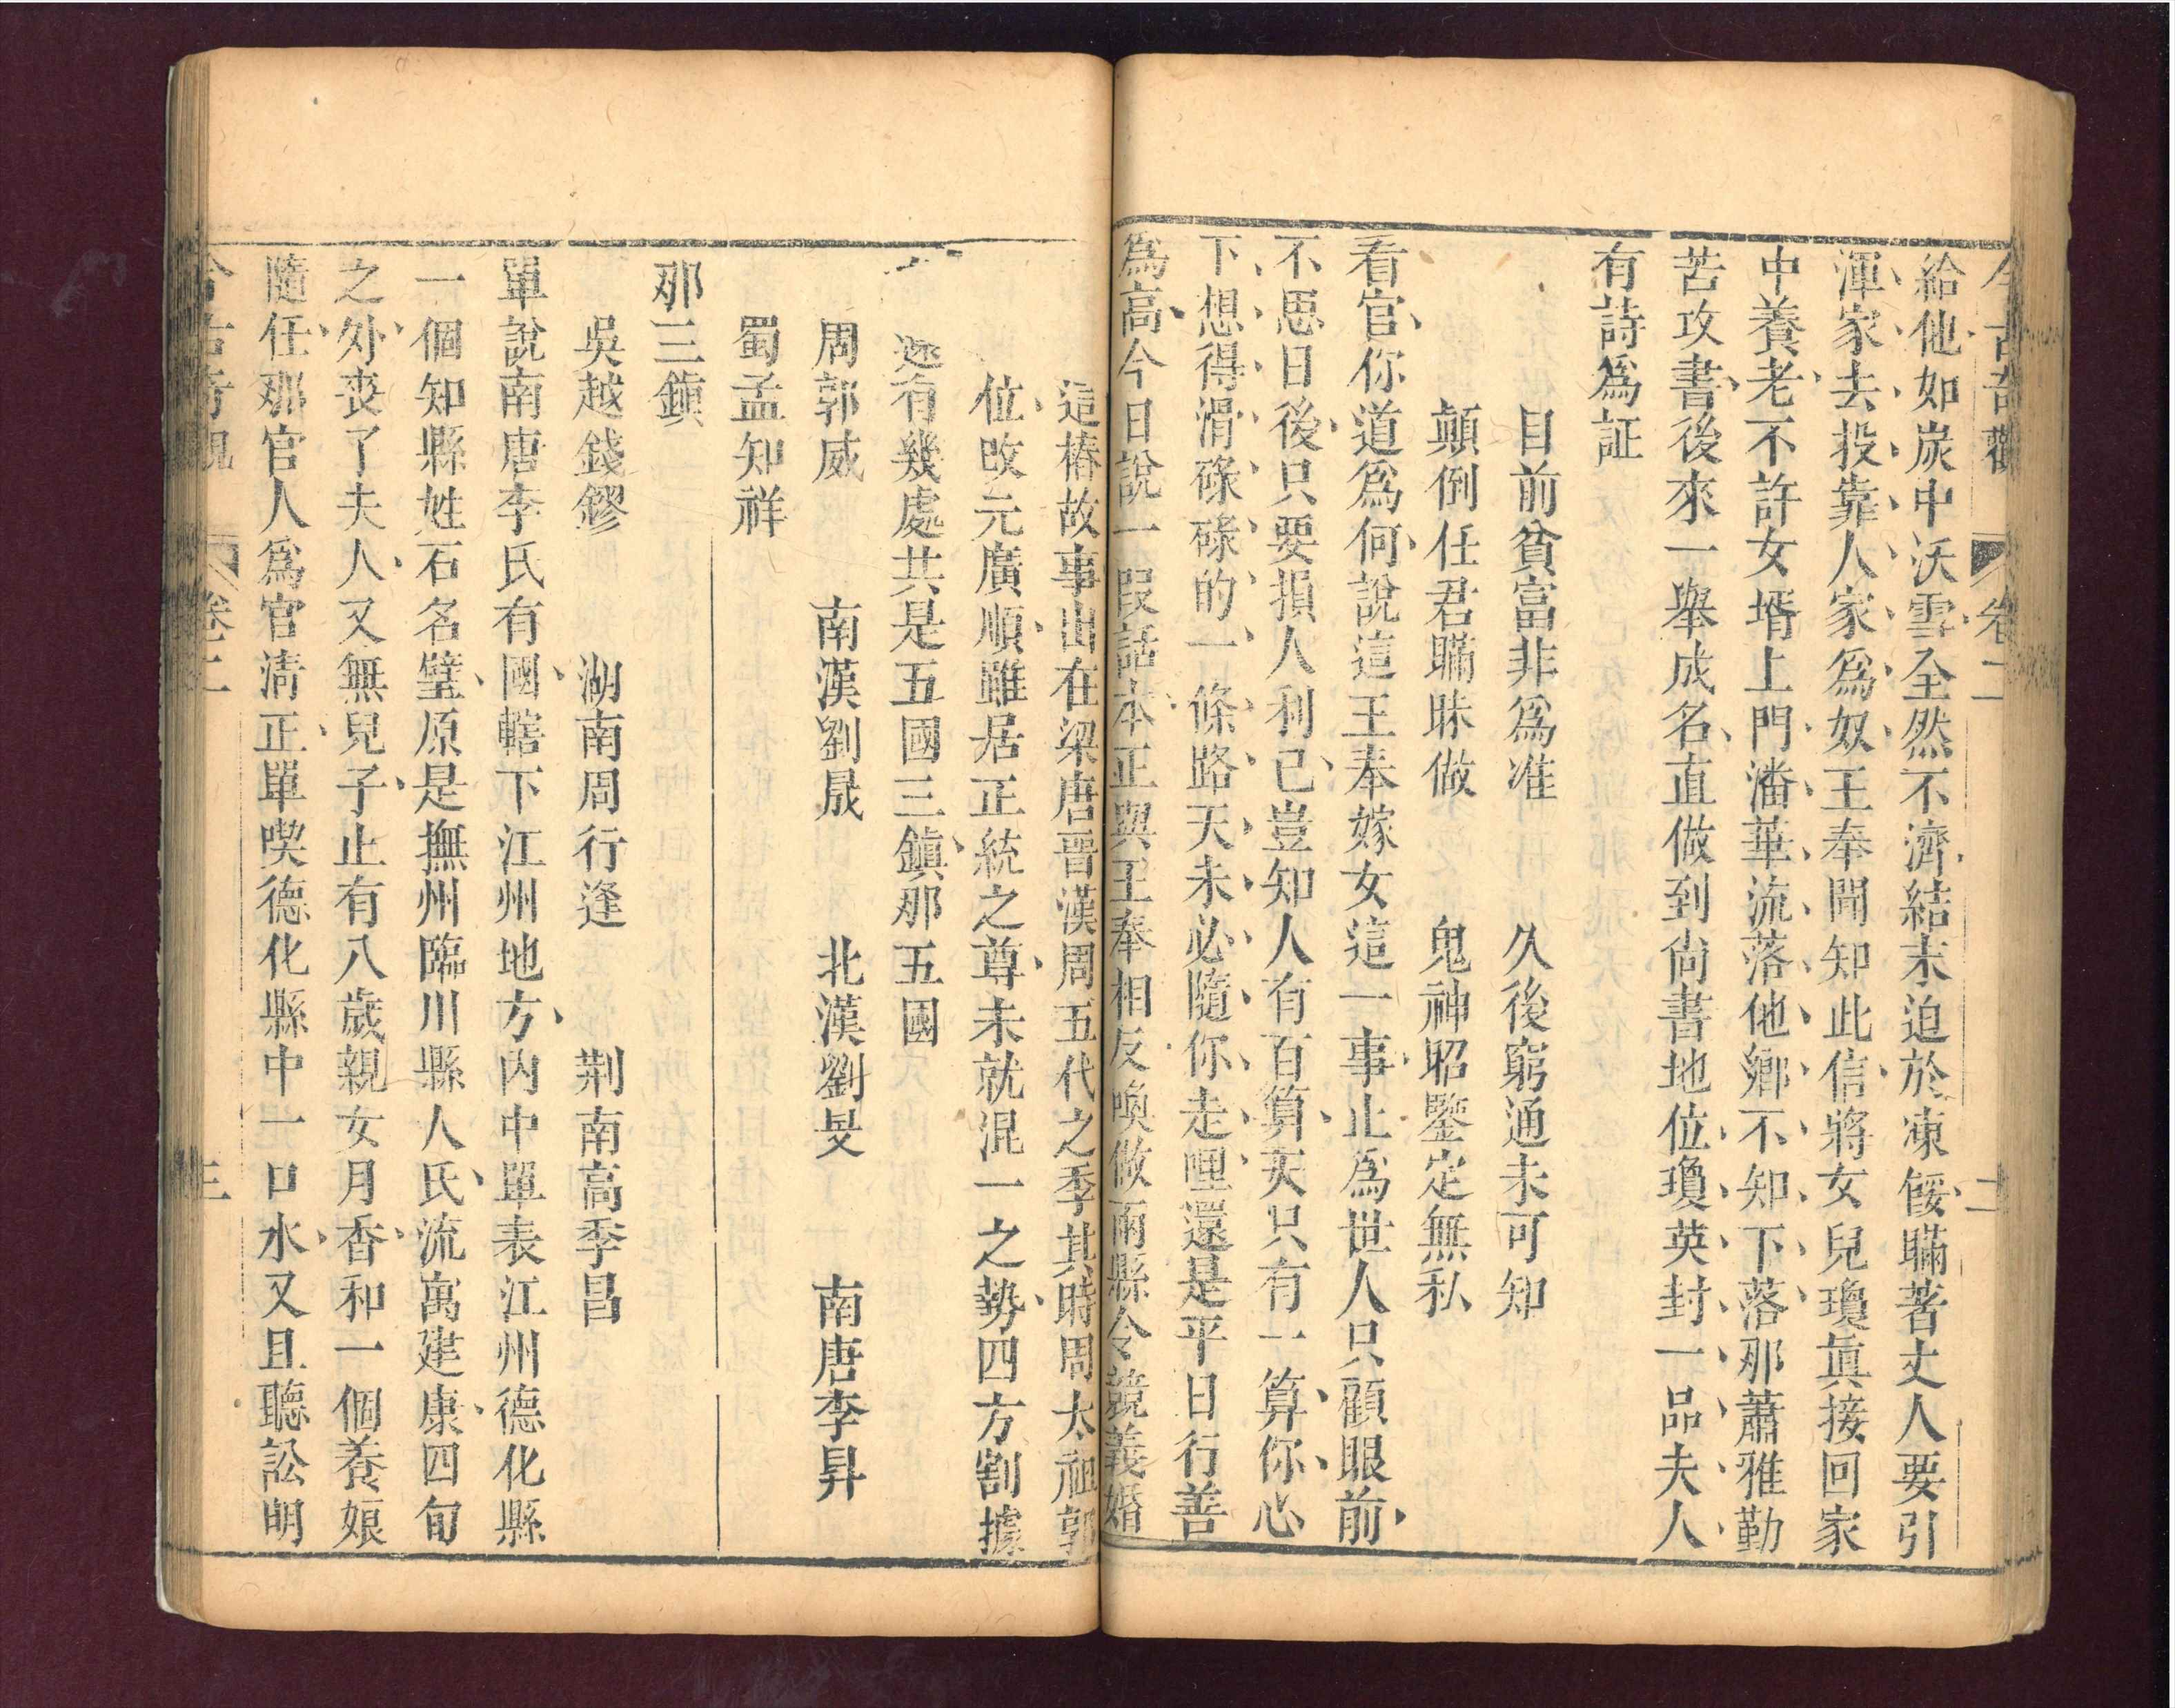 今古奇觀 卷二 二
給他如炭中沃雪全然不濟結末迫於凍餒瞞著丈人要引
渾家去投靠人家爲奴王奉聞知此信將女兒瓊真接回家
中養老不許女壻上門潘華流落他鄉不知下落那蕭雅勤
苦攻書後來一舉成名直做到尙書地位瓊英封一品夫人
有詩爲証
目前貧富非爲准 久後窮通未可知
顛倒任君瞞昧做 鬼神昭鑒定無私
看官你道爲何說這王奉嫁女這一事止爲世人只顧眼前
不思日後只要損人利己豈知人有百算天只有一算你心
下想得滑碌碌的一條路天未必隨你走哩還是平日行善
爲高今日說一段話本正與王奉相反喚做兩縣令競義婚
這樁故事出在梁唐晉漢周五代之季其時周太祖郭
位改元廣順雖居正統之尊未就混一之勢四方割據
還有幾處共是五國三鎮那五國
周郭威 南漢劉晟 北漢劉旻 南唐李昇
蜀孟知祥
那三鎮
吳越錢鏐 湖南周行逢 荆南高季昌
單說南唐李氏有國轄下江州地方內中單表江州德化縣
一個知縣姓石名璧原是撫州臨川縣人氏流寓建康四旬
之外喪了夫人又無兒子止有八歲親女月香和一個養娘
隨任那官人爲官清正單喫德化縣中一口水又且聽訟明
今古奇觀 卷二 三